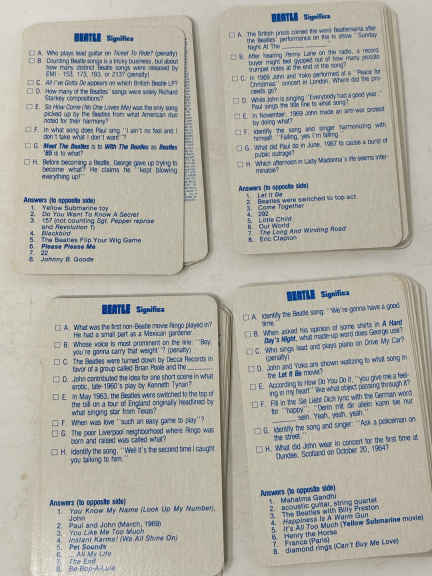 BEATLE Significs
A. Who plays lead guitar on Ticket To Ride? (penalty)
B. Counting Beatle songs is a tricky business, but about
how many distinct Beatle songs were released by
EMI - 153, 173, 193, or 213? (penalty)
C. All I've Gotta Do appears on which British Beatle LP?
D. How many of the Beatles' songs were solely Richard
Starkey compositions?
E. So How Come (No One Loves Me) was the only song
picked up by the Beatles from what American duo
noted for their harmony?
F. In what song does Paul sing "I ain't no fool and I
don't take what I don't want"?
G. Meet The Beatles is to With The Beatles as Beatles
'65 is to what?
H. Before becoming a Beatle, George gave up trying to
become what? He claims he "kept blowing
everything up!"
Answers (to opposite side)
1. Yellow Submarine toy
2. Do You Want To Know A Secret
3. 157 (not counting Sgt. Pepper reprise
and Revolution 1)
4. Blackbird
5. The Beatles Flip Your Wig Game
6. Please Please Me
7. 22
8. Johnny B. Goode
BEATLE Significs
A. The British press coined the word Beatlemania after
the Beatles' performance on the tv show "Sunday
Night At The
B. After hearing Penny Lane on the radio, a record
buyer might feel gypped out of how many piccolo
trumpet notes at the end of the song?
C. In 1969 John and Yoko performed at a "Peace for
Christmas" concert in London. Where did the pro-
ceeds go?
D. While John is singing "Everybody had a good year,"
Paul sings the title line to what song?
E. In November, 1969 John made an anti-war protest
by doing what?
F. Identify the song and singer harmonizing with
himself: "Failing, yes I'm failing
G. What did Paul do in June, 1967 to cause a burst of
public outrage?
H. Which afternoon in Lady Madonna's life seems inter-
minable?
Answers (to opposite side)
1. Let It Be
2. Beatles were switched to top act
3. Come Together
4. 292
5. Little Child
6. Our World
7. The Long And Winding Road
8. Eric Clapton
BEATLE Significs
A. What was the first non-Beatle movie Ringo played in?
He had a small part as a Mexican gardener.
B. Whose voice is most prominent on the line: "Boy,
you're gonna carry that weight"? (penalty)
C. The Beatles were turned down by Decca Records in
favor of a group called Brian Poole and the
D. John contributed the idea for one short scene in what
erotic, late-1960's play by Kenneth Tynan?
E. In May 1963, the Beatles were switched to the top of
the bill on a tour of England originally headlined by
what singing star from Texas?
F. When was love "such an easy game to play"?
G. The poor Liverpool neighborhood where Ringo was
born and raised was called what?
H. Identify the song. "Well it's the second time I caught
you talking to him."
Answers (to opposite side)
1. You Know My Name (Look Up My Number),
John
2. Paul and John (March, 1969)
3. You Like Me Too Much
4. Instant Karma! (We All Shine On)
5. Pet Sounds
6. ... All My Life
7. The End
8. Be-Bop-A-Lula
BEATLE Significs
A. Identify the Beatle song: "We're gonna have a good
time."
B. When asked his opinion of some shirts in A Hard
Day's Night, what made-up word does George use?
C. Who sings lead and plays piano on Drive My Car?
(penalty)
D. John and Yoko are shown waltzing to what song in
the Let It Be movie?
E. According to How Do You Do It, "you give me a feel-
ing in my heart" like what object passing through it?
F. Fill in the Sie Liebt Dich lyric with the German word
for "happy": "Denn mit dir allein kann sie nur
sein. Yeah, yeah, yeah."
G. Identify the song and singer: "Ask a policeman on
the street."
H. What did John wear in concert for the first time at
Dundee, Scotland on October 20, 1964?
Answers (to opposite side)
1. Mahatma Gandhi
2. acoustic guitar, string quartet
3. The Beatles with Billy Preston
4. Happiness Is A Warm Gun
5. It's All Too Much (Yellow Submarine movie)
6. Henry the Horse
7. France (Paris)
8. diamond rings (Can't Buy Me Love)